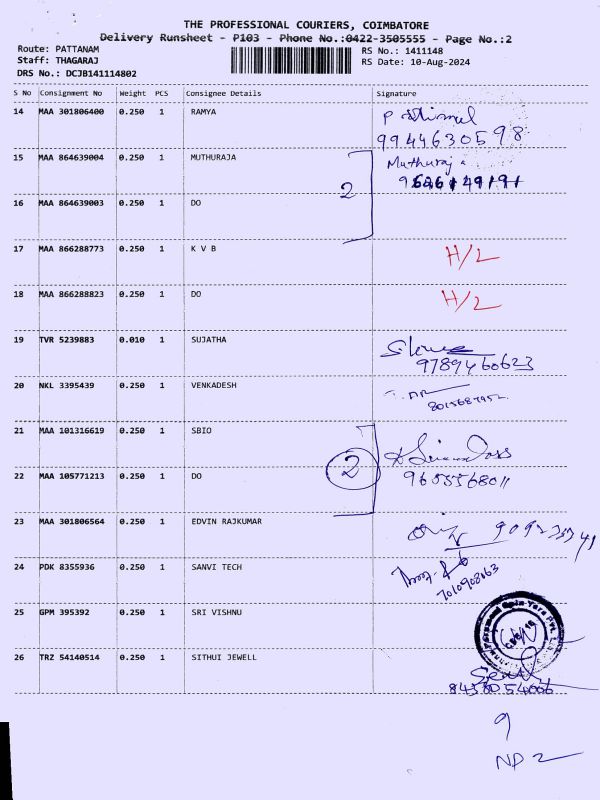 THE PROFESSIONAL COURIERS, COIMBATORE
Delivery Runsheet - P103 - Phone No.:0422-3505555 - Page No.:2
Route: PATTANAM
RS No.: 1411148
Staff: THAGARAJ
RS Date: 10-Aug-2024
DRS No.: DCJB141114802
S No Consignment No Weight PCS Consignee Details Signature
14 MAA 301806400 0.250 1 RAMYA
9944630598
15 MAA 864639004 0.250 1 MUTHURAJA Muthuraja
2
16 MAA 864639003 0.250 1 DO
17 MAA 866288773 0.250 1 K V B H/L
18 MAA 866288823 0.250 1 DO H/L
19 TVR 5239883 0.010 1 SUJATHA
9789460623
20 NKL 3395439 0.250 1 VENKADESH
21 MAA 101316619 0.250 1 SBIO
2
22 MAA 105771213 0.250 1 DO 9655568011
23 MAA 301806564 0.250 1 EDVIN RAJKUMAR
24 PDK 8355936 0.250 1 SANVI TECH
7010908063
25 GPM 395392 0.250 1 SRI VISHNU
26 TRZ 54140514 0.250 1 SITHUI JEWELL
8438054006
9
NP 2